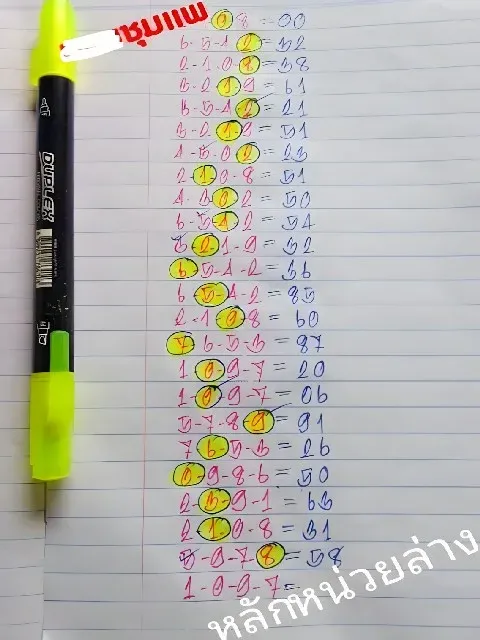 ซุ้มแพ
0 8 = 00
6-5-4-2 = 32
2-1-0-8 = 38
3-2-1-9 = 61
6-5-4-2 = 21
3-2-1-9 = 51
4-3-0-2 = 23
2-1-0-8 = 51
4-3-0-2 = 50
6-5-4-2 = 54
3-2-1-9 = 32
6-5-4-2 = 36
6-5-4-2 = 85
2-1-0-8 = 60
7-6-5-3 = 87
1-0-9-7 = 20
1-0-9-7 = 06
5-7-8-9 = 91
7-6-5-3 = 26
0-9-8-6 = 50
2-3-9-1 = 63
2-1-0-8 = 31
5-9-7-8 = 58
1-0-9-7 =
หลักหน่วยล่าง
DUPLEX